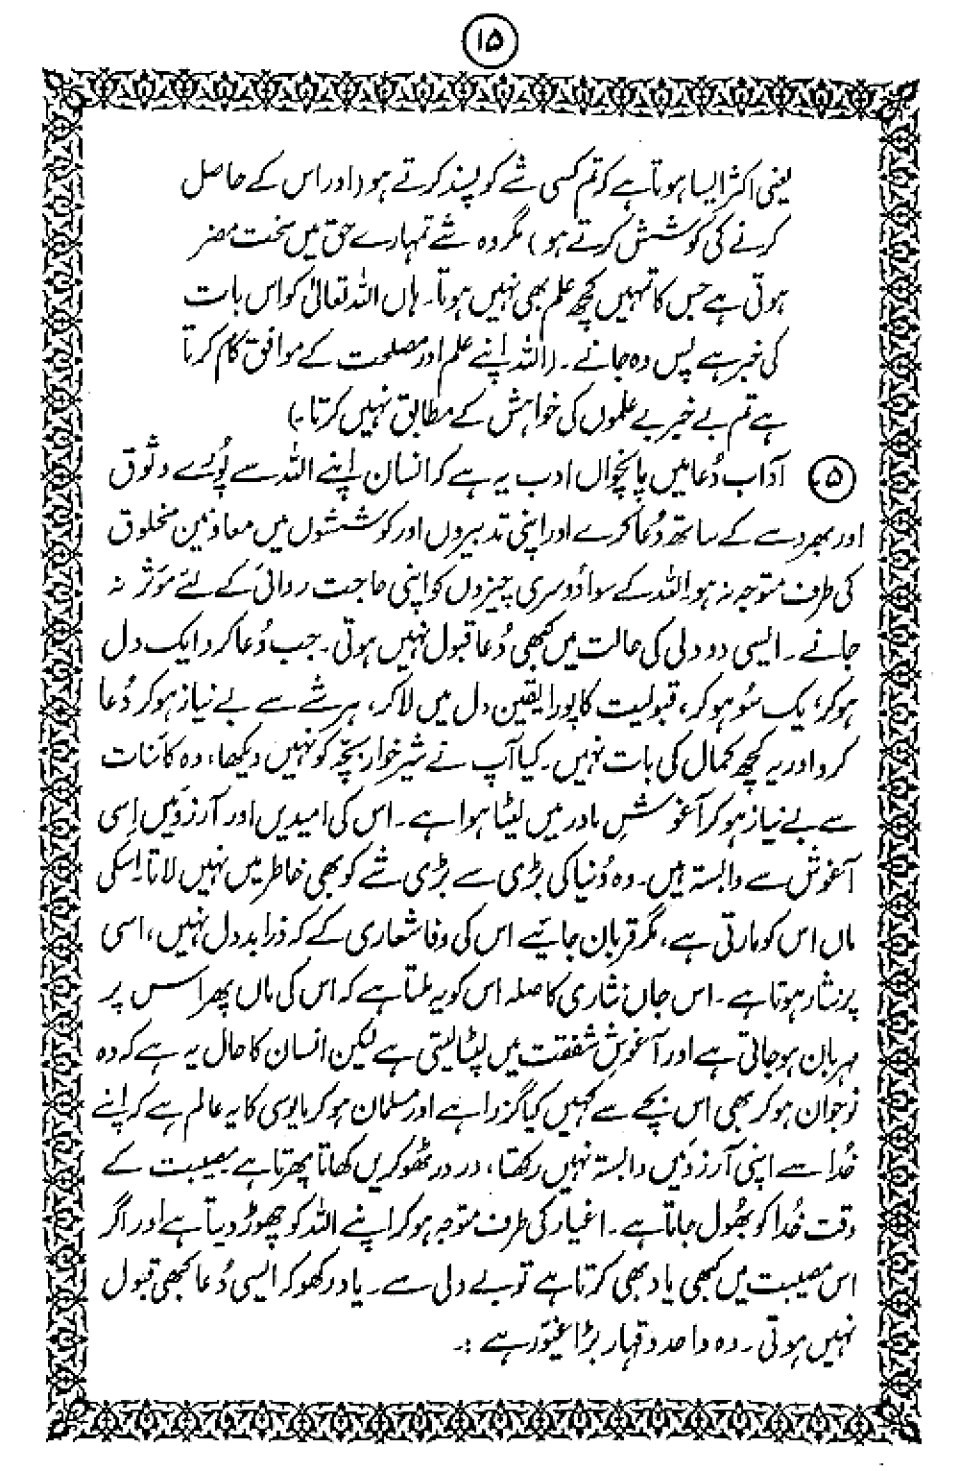 ۱۵
یعنی اکثر ایسا ہوتا ہے کہ تم کسی شے کو پسند کرتے ہو (اور اس کے حاصل
کرنے کی کوشش کرتے ہو) مگر وہ شے تمہارے حق میں سخت مضر
ہوتی ہے جس کا تمہیں کچھ علم بھی نہیں ہوتا۔ ہاں اللہ تعالیٰ کو اس بات
کی خبر ہے پس وہ جانے۔ (اللہ اپنے علم اور مصلحت کے موافق کام کرتا
ہے تم بے خبر بے علموں کی خواہش کے مطابق نہیں کرتا۔)
۵۔ آداب دُعا میں پانچواں ادب یہ ہے کہ انسان اپنے اللہ سے پُورے وثوق
اور بھروسے کے ساتھ دُعا کرے اور اپنی تدبیروں اور کوششوں میں معاونین مخلوق
کی طرف متوجہ نہ ہو اللہ کے سوا دُوسری چیزوں کو اپنی حاجت روائی کے لئے مؤثر نہ
جانے۔ ایسی دو دلی کی حالت میں کبھی دُعا قبول نہیں ہوتی۔ جب دُعا کرو ایک دل
ہو کر، یک سُو ہو کر، قبولیت کا پورا یقین دل میں لا کر، ہر شے سے بے نیاز ہو کر دُعا
کرو اور یہ کچھ کمال کی بات نہیں۔ کیا آپ نے شیر خوار بچّہ کو نہیں دیکھا، وہ کائنات
سے بے نیاز ہو کر آغوشِ مادر میں لیٹا ہوا ہے۔ اس کی امیدیں اور آرزوئیں اِسی
آغوش سے وابستہ ہیں۔ وہ دُنیا کی بڑی سے بڑی شے کو بھی خاطر میں نہیں لاتا۔ اِسکی
ماں اس کو مارتی ہے، مگر قربان جائیے اس کی وفا شعاری کے کہ ذرا بد دل نہیں، اسی
پر نثار ہوتا ہے۔ اس جاں نثاری کا صلہ اس کو یہ ملتا ہے کہ اس کی ماں پھر اس پر
مہربان ہو جاتی ہے اور آغوشِ شفقت میں لپٹا لیتی ہے لیکن انسان کا حال یہ ہے کہ وہ
نوجوان ہو کر بھی اس بچے سے کہیں گیا گزرا ہے اور مسلمان ہو کر مایوسی کا یہ عالم ہے کہ اپنے
خُدا سے اپنی آرزوئیں وابستہ نہیں رکھتا، در در ٹھوکریں کھاتا پھرتا ہے مصیبت کے
وقت خُدا کو بھُول جاتا ہے۔ اغیار کی طرف متوجہ ہو کر اپنے اللہ کو چھوڑ دیتا ہے اور اگر
اس مصیبت میں کبھی یاد بھی کرتا ہے تو بے دلی سے۔ یاد رکھو کہ ایسی دُعا کبھی قبول
نہیں ہوتی۔ وہ واحد و قہار بڑا غیوّر ہے :۔